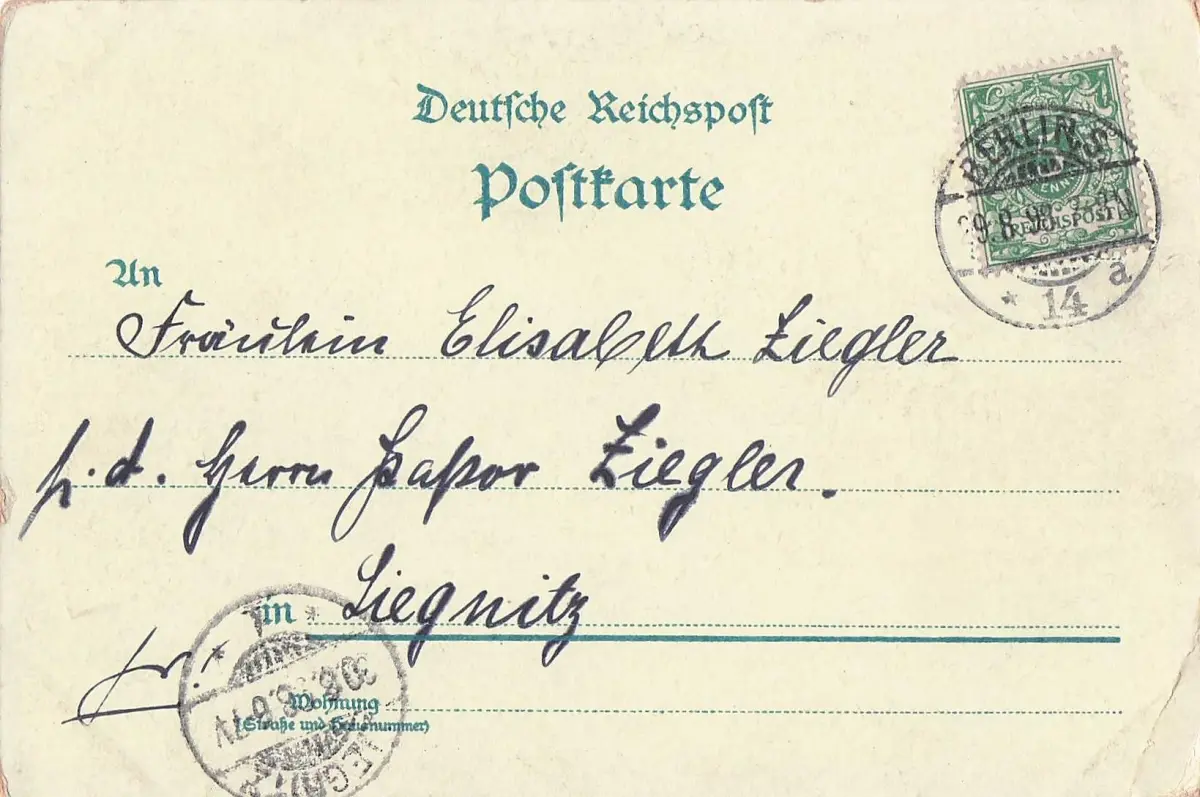 Deutsche Reichspost
Postkarte
BERLIN, S.
REICHSPOST
* 14 a
An
Fräulein Elisabeth Ziegler
p. d. Herrn Pastor Ziegler.
in Liegnitz
fr.
Wohnung
(Straße und Hausnummer)